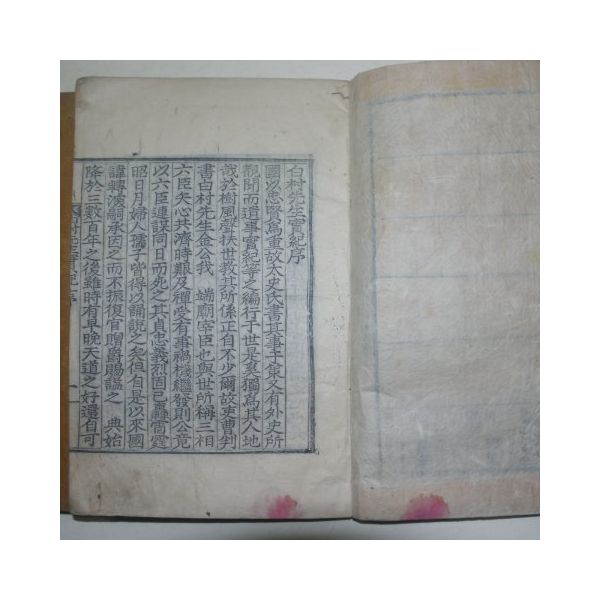 白村先生實紀序
國以忠賢爲重故太史氏書其事于策又有外史所
覩聞而遺事實紀等之編行于世是奚獨爲其人地
哉於樹風聲扶世教其所係正自不少爾故吏曹判
書白村先生金公我 端廟宰臣也與世所稱三相
六臣矢心共濟時艱及禪受有事禍機繼發則公竟
以六臣連謀同日而死之其貞忠義烈固已轟雷霆
昭日月婦人孺子皆得以誦說之矣但自是以來國
諱轉深嗣承因之而不振復官贈爵賜謚之 典始
降於三數百年之後雖時有早晚天道之好還自可
白村先生實紀 序 一